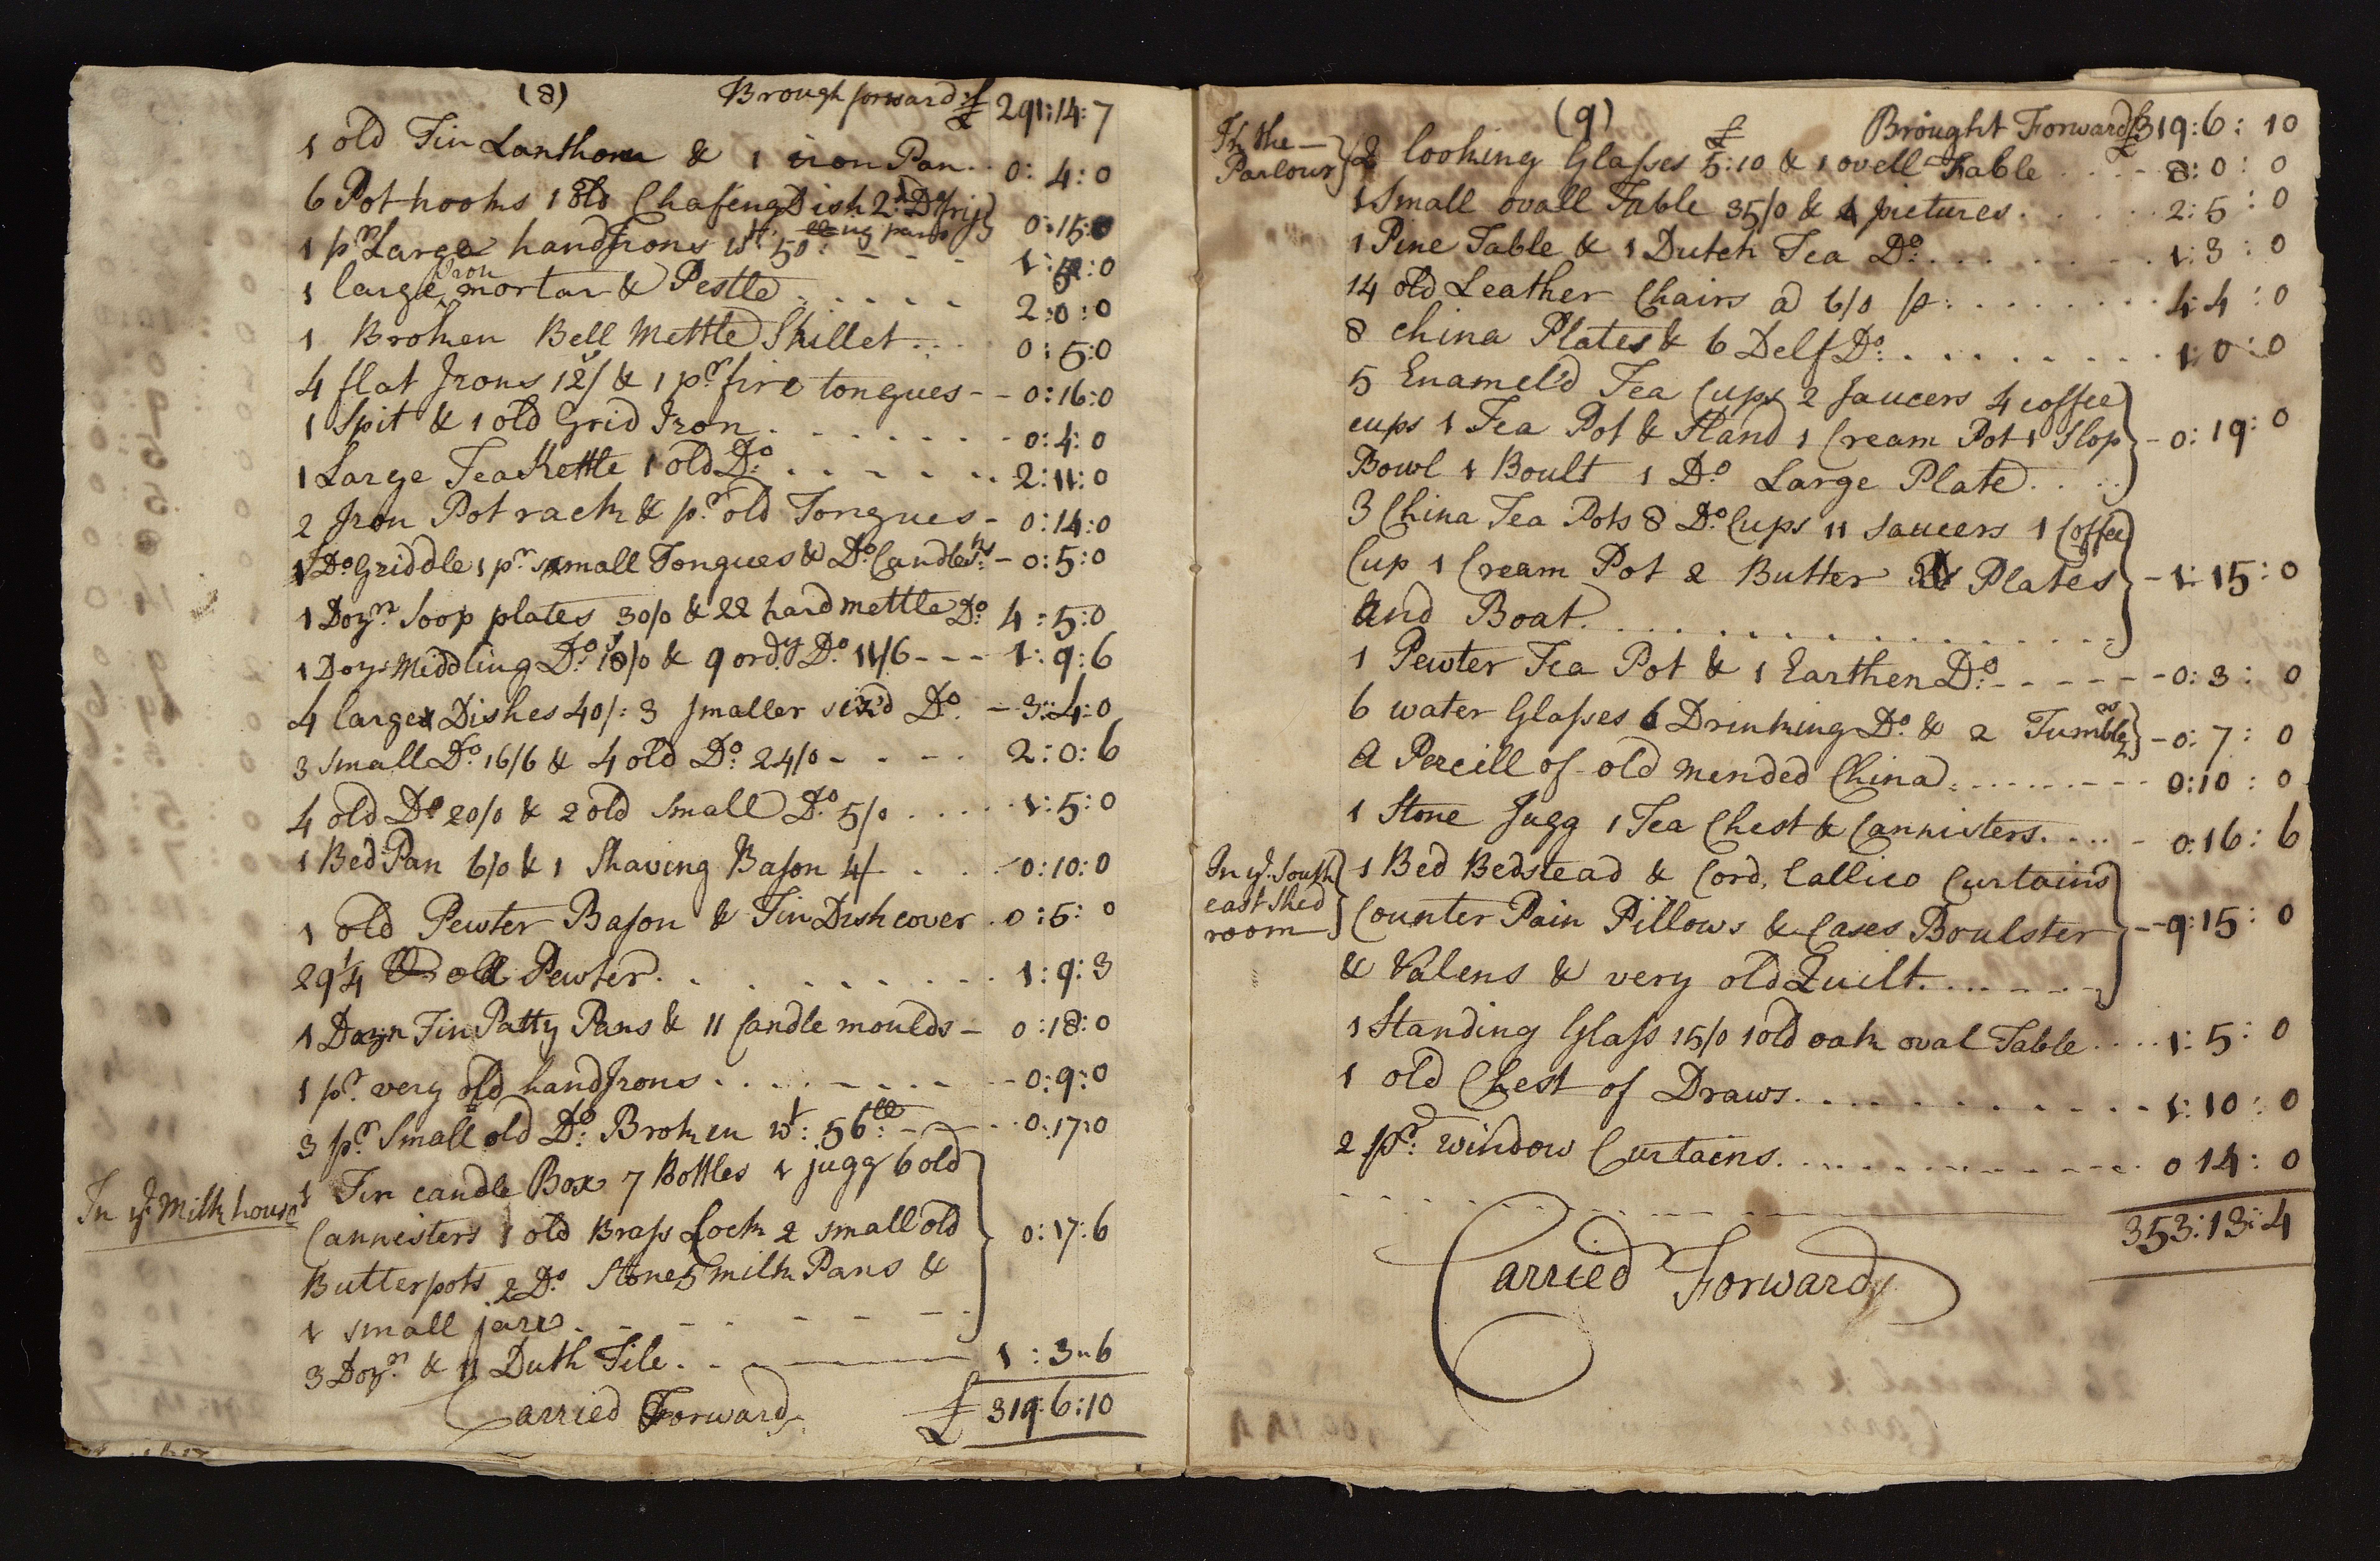 (8) Brough forward £ 291:14:7
1 old Tin Lanthorn & 1 iron Pan .. 0:4:0
6 Pot hooks 1 old Chafeing Dish 2 Do frij
lling pans 0:15:0
1 pr Large handJrons wt. 50: - - - 1:5:0
Iron
1 large mortar & Pestle . . . . . 2:0:0
1 Broken Bell Mettle Skillet . . 0:5:0
4 flat Jrons 12/ & 1 pr. fire tongues - - 0:16:0
1 Spit & 1 old Grid Iron . . . . . . 0:4:0
1 Large Tea Kettle 1 old Do. . . . . . 2:11:0
2 Jron Pot rack & pr. old Tongues - 0:14:0
1 Do Griddle 1 pr. small Tongues & Do. Candlests. - 0:5:0
1 Dozn. Soop plates 30/0 & 22 hard mettle Do. 4:5:0
1 Doz Middling Do. 18/0 & 9 ordy. Do 11/6 - - - 1:9:6
4 large Dishes 40/: 3 smaller sized Do. - 3:4:0
3 small Do. 16/6 & 4 old Do. 24/0 - - - - 2:0:6
4 old Do 20/0 & 2 old small Do. 5/0 . . . . 1:5:0
1 Bed Pan 6/0 & 1 Shaving Bason 4/ . . . 0:10:0
1 old Pewter Bason & Tin Dish cover . 0:5:0
29 1/4 lb old Pewter . . . . . . . . 1:9:3
1 Dozn Tin Patty Pans & 11 Candle moulds - 0:18:0
1 pr. very old handJrons . . . . . . . 0:9:0
3 pr. Small old Do: Broken wt: 56lb: - - - 0:17:0
In ye. Milk house
1 Tin candle Box 7 Bottles 1 jugg 6 old
Cannisters 1 old Brass Lock 2 small old 0:17:6
Butterpots 2 Do. Stone 5 milk Pans &
1 small jare . - - - - -
3 Dozn. & 11 Duth Tile . . 1:3:6
Carried Forward £ 319:6:10
(9) Brought Forward £ 319:6:10
In the
Parlour
2 looking Glasses £5:10 & 1 ovell Table . . . . 8:0:0
1 Small ovall Table 35/0 & 4 pictures . . . . 2:5:0
1 Pine Table & 1 Dutch Tea Do. . . . . . . 1:3:0
14 old Leather Chairs a 6/0 p: . . . . . . 4:4:0
8 china Plates & 6 Delf Do: . . . . . . . 1:0:0
5 Enamel'd Tea Cups 2 saucers 4 coffee
cups 1 Tea Pot & Stand 1 Cream Pot 1 Slop - 0:19:0
Bowl 1 Boult 1 Do Large Plate . . . .
3 China Tea Pots 8 Do. Cups 11 saucers 1 Coffee
Cup 1 Cream Pot 2 Butter Plates - 1:15:0
And Boat . . . . . . . . . . . .
1 Pewter Tea Pot & 1 Earthen Do: - - - - - - 0:3:0
6 water Glasses 6 Drinking Do. & 2 Tumblers - 0:7:0
A Percill of old mended China . . . . . . . 0:10:0
1 Stone Jugg 1 Tea Chest & Cannisters . . . . - 0:16:6
In ye. South
east Shed
room
1 Bed Bedstead & Cord, Callico Curtains
Counter Pain Pillows & Cases Boulster - - 9:15:0
& Valens & very old Quilt . . . . . . .
1 Standing Glass 15/0 1 old oak oval Table . . . . 1:5:0
1 old Chest of Draws . . . . . . . . . . 1:10:0
2 pr: window Curtains . . . . . . . . . . 0 14:0
353:13:4
Carried Forward